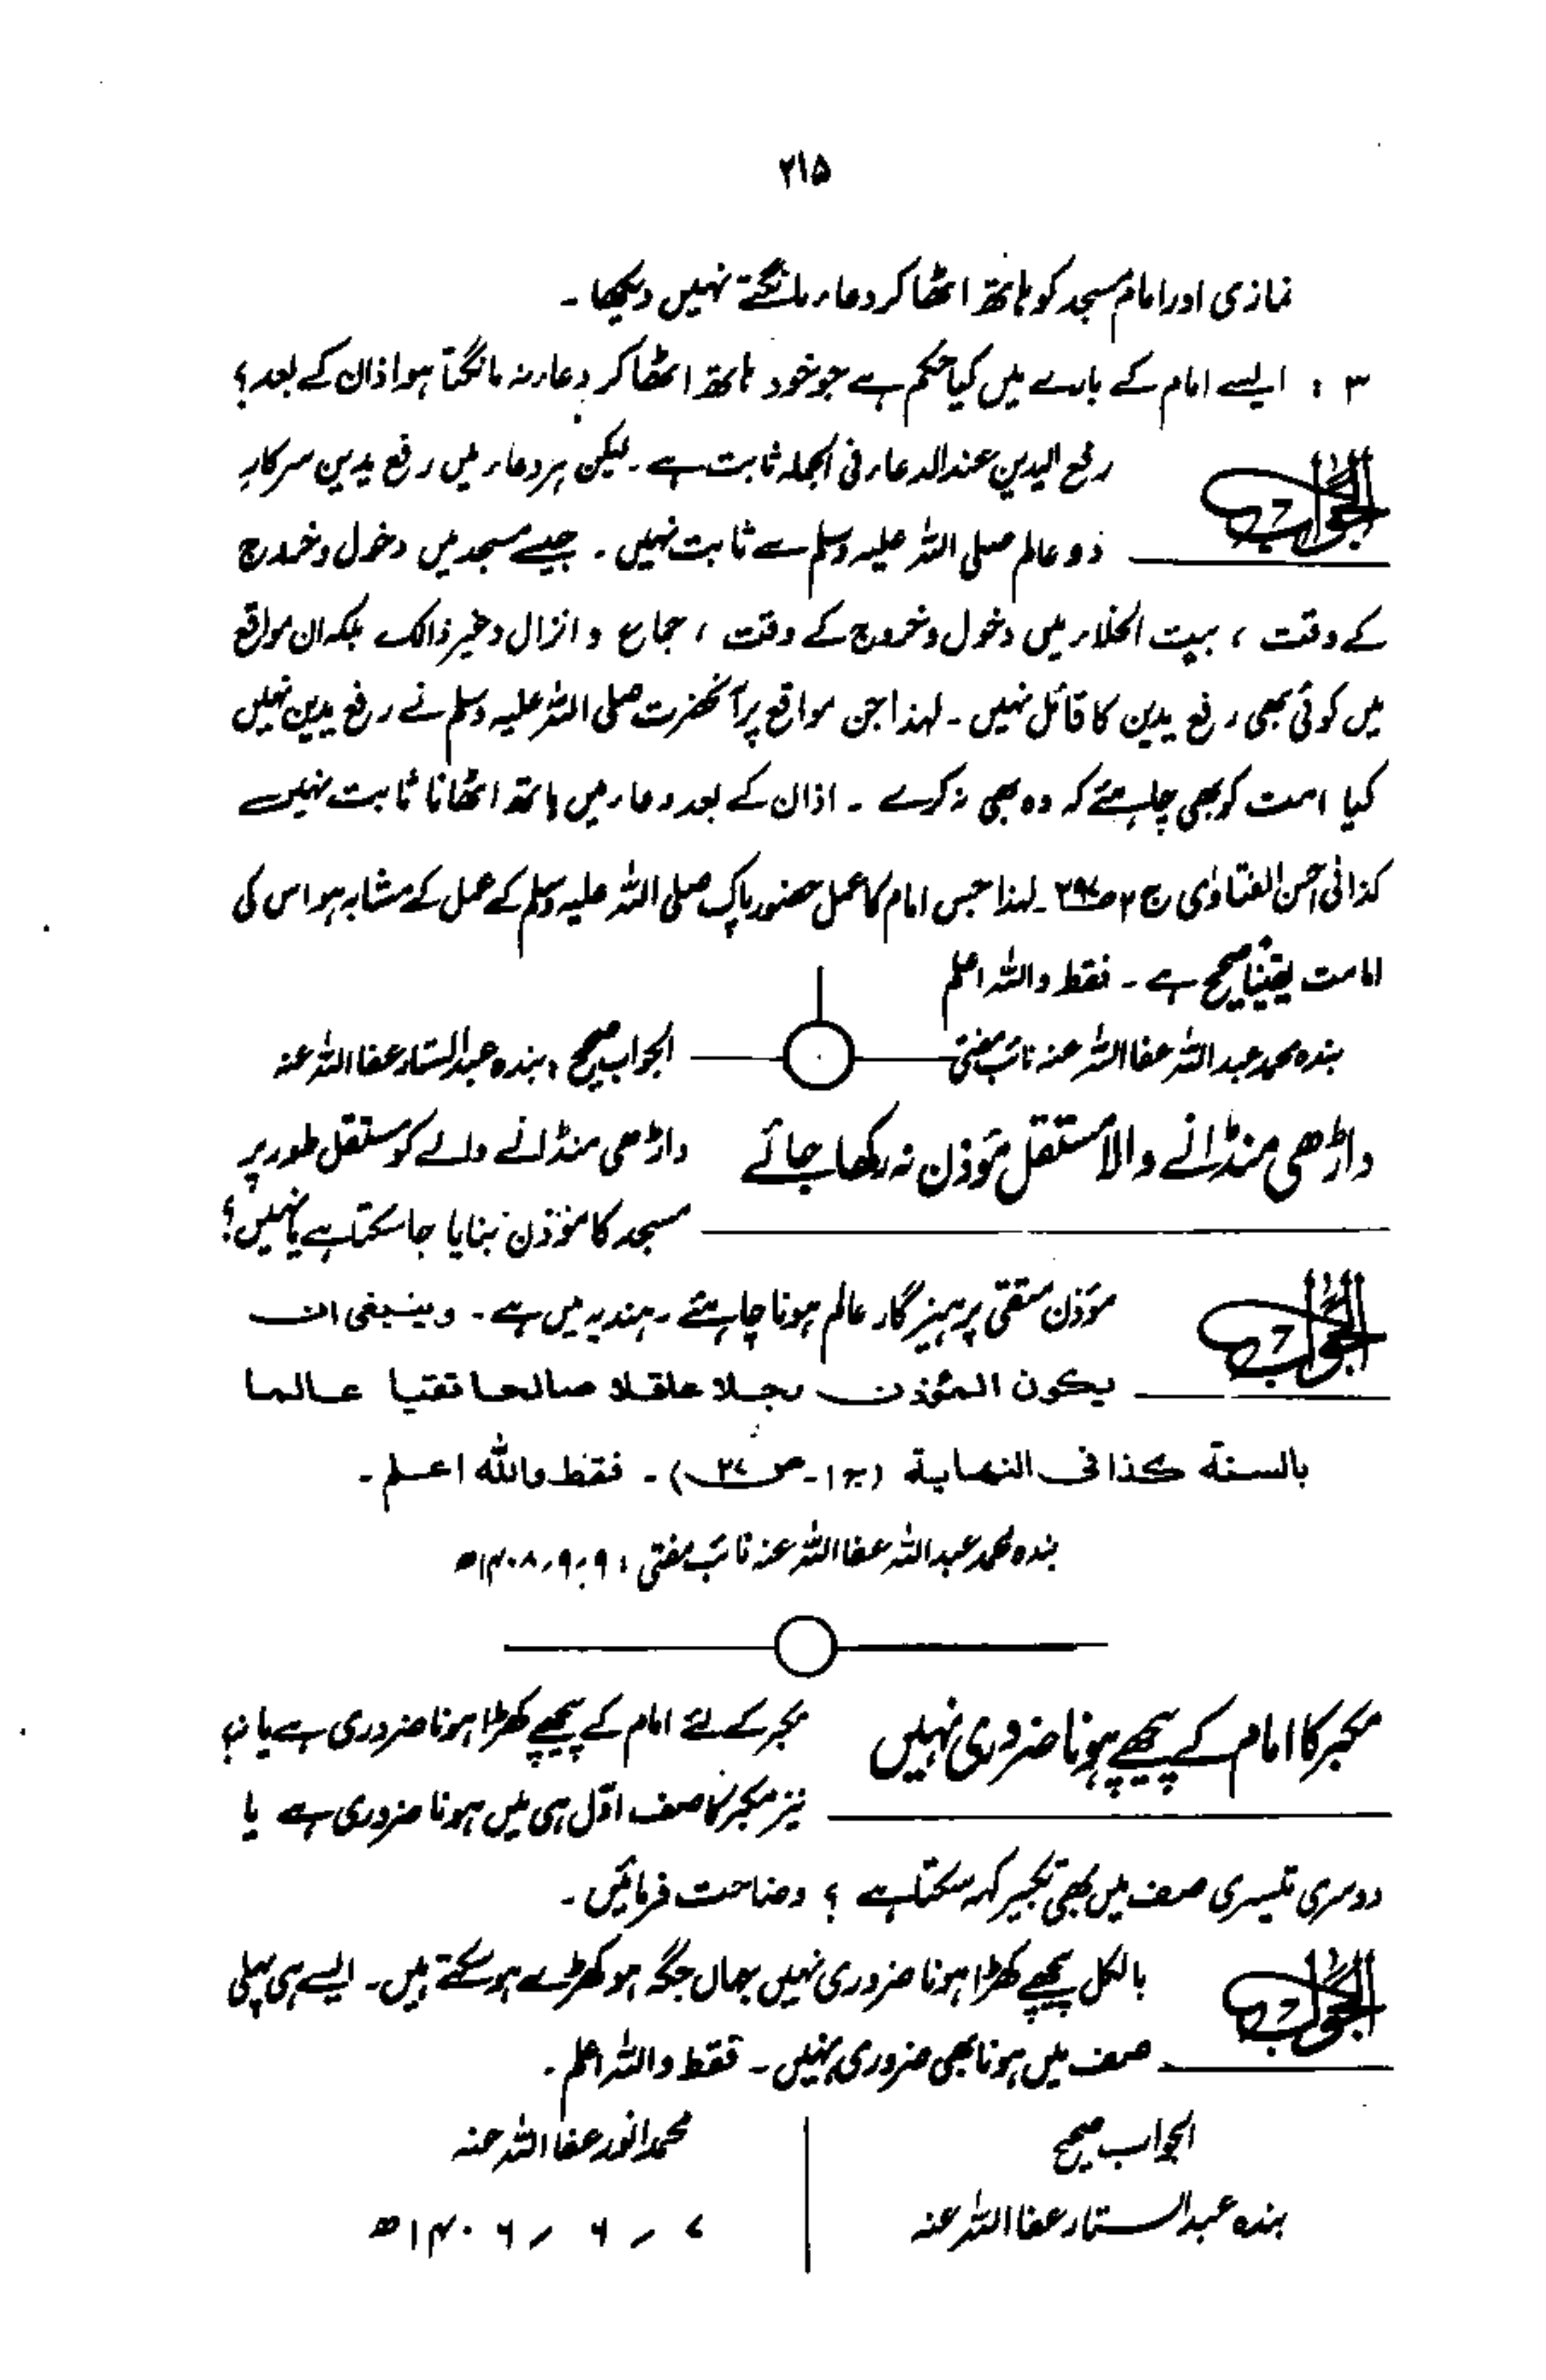 ۲۱۵
نمازی اور امام مسجد کو ہاتھ اٹھا کر دعاء مانگتے نہیں دیکھا ۔
۳ : ایسے امام کے بارے میں کیا حکم ہے جو خود ہاتھ اٹھا کر دعاء نہ مانگتا ہو اذان کے بعد ؟
الجواب
رفع الیدین عند الدعاء فی الجملہ ثابت ہے ۔ لیکن ہر دعاء میں رفع یدین سرکارِ
دو عالم صلی اللہ علیہ وسلم سے ثابت نہیں ۔ جیسے مسجد میں دخول و خروج
کے وقت ، بیت الخلاء میں دخول و خروج کے وقت ، جماع و انزال وغیر ذالک بلکہ ان مواقع
میں کوئی بھی رفع یدین کا قائل نہیں ۔ لہذا جن مواقع پر آنحضرت صلی اللہ علیہ وسلم نے رفع یدین نہیں
کیا امت کو بھی چاہئے کہ وہ بھی نہ کرے ۔ اذان کے بعد دعاء میں ہاتھ اٹھانا ثابت نہیں
کذا فی احسن الفتاوٰی ج ۲ ص ۔ لہذا جس امام کا عمل حضور پاک صلی اللہ علیہ وسلم کے عمل کے مشابہ ہو اس کی
امامت یقیناً صحیح ہے ۔ فقط واللہ اعلم
بندہ محمد عبداللہ عفا اللہ عنہ نائب مفتی
الجواب صحیح ، بندہ عبدالستار عفا اللہ عنہ
داڑھی منڈانے والا مستقل مؤذن نہ رکھا جائے
داڑھی منڈانے والے کو مستقل طور پر
مسجد کا مؤذن بنایا جا سکتا ہے یا نہیں ؟
الجواب
مؤذن متقی پرہیز گار عالم ہونا چاہئے ۔ ہندیہ میں ہے ۔ وینبغی ان
یکون المؤذن رجلا عاقلا صالحا تقیا عالما
بالسنۃ کذا فی النھایۃ (ج۱ ۔ ص ۲۷) ۔ فقط واللہ اعلم ۔
بندہ محمد عبداللہ عفا اللہ عنہ نائب مفتی ، ۹ ر ۹ ر ۱۴۰۸ھ
مکبر کا امام کے پیچھے ہونا ضروری نہیں
مکبر کے لئے امام کے پیچھے کھڑا ہونا ضروری ہے یا نہ
نیز مکبر کا صف اوّل ہی میں ہونا ضروری ہے یا
دوسری تیسری صف میں بھی تکبیر کہہ سکتا ہے ؟ وضاحت فرمائیں ۔
الجواب
بالکل پیچھے کھڑا ہونا ضروری نہیں جہاں جگہ ہو کھڑے ہو سکتے ہیں ۔ ایسے ہی پہلی
صف میں ہونا بھی ضروری نہیں ۔ فقط واللہ اعلم ۔
الجواب صحیح
بندہ عبدالستار عفا اللہ عنہ
محمد انور عفا اللہ عنہ
۷ ر ۶ ر ۱۴۰۶ھ